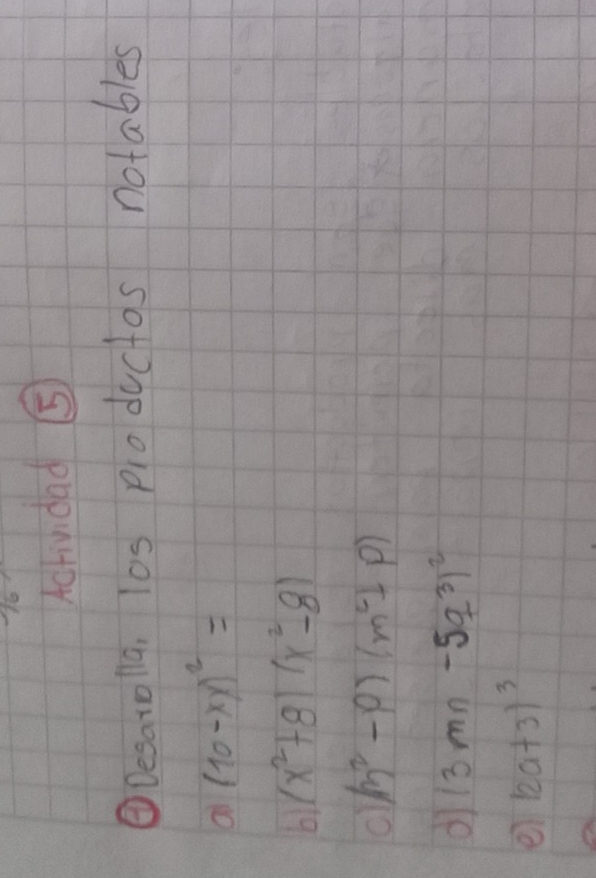 Actividad 5
1 Desarolla, los productos notables
a) (10-xy)² =
b) (x²+8)(x²-8)
c) (m²-p)(m²+p)
d) (3mn-5q³)²
e) (2a+3)³